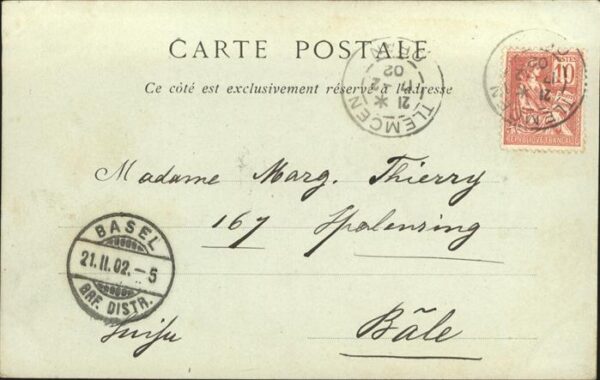 CARTE POSTALE
Ce côté est exclusivement réservé à l'adresse
TLEMCEN
21
2
02
ORAN
POSTES
10
REPUBLIQUE FRANÇAISE
TLEMCEN
21
2
02
Madame Marg. Thierry
167 Spalenring
Bâle
BASEL
21.II.02.-5
BRF. DISTR.